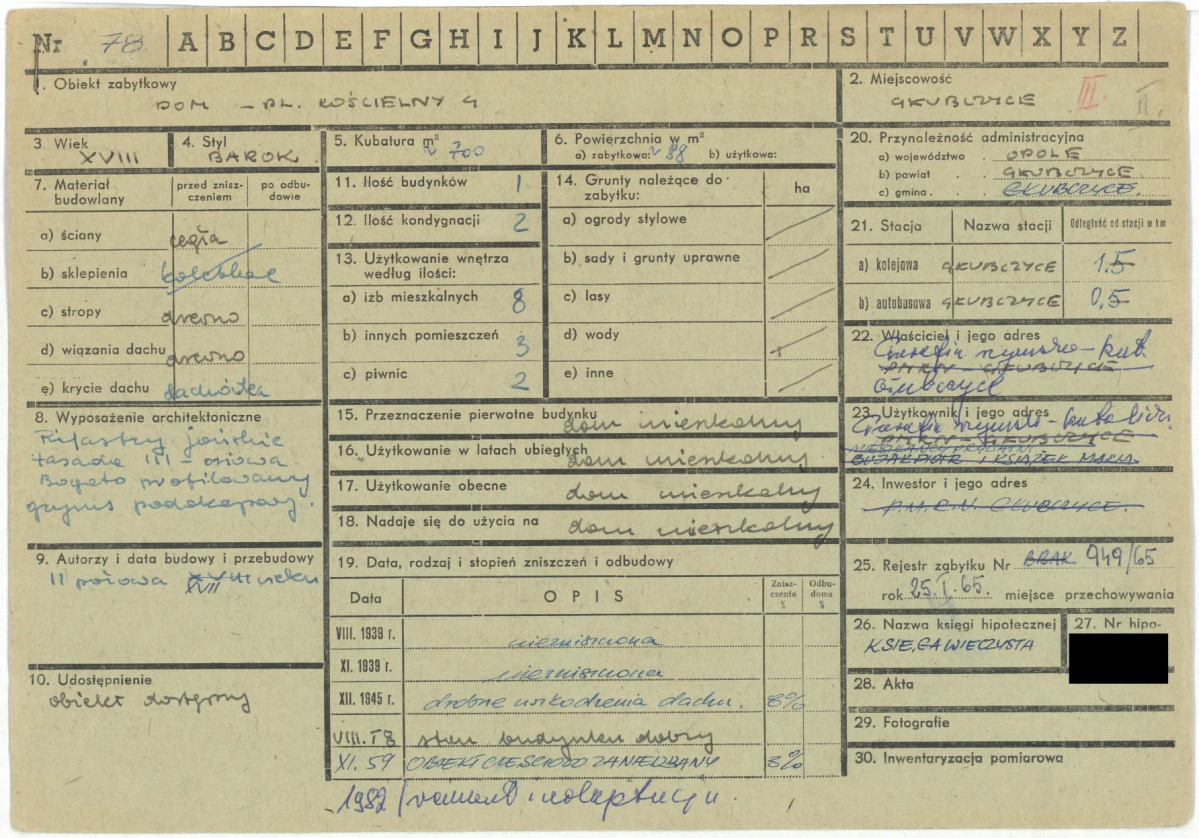 Nr 78 A B C D E F G H I J K L M N O P R S T U V W X Y Z
1. Obiekt zabytkowy
DOM – PL. KOŚCIELNY 4
2. Miejscowość
GŁUBCZYCE III. II.
3. Wiek
XVIII
4. Styl
BAROK
5. Kubatura m³
~ 700
6. Powierzchnia w m²
a) zabytkowa: ~ 88 b) użytkowa:
7. Materiał budowlany
przed zniszczeniem
po odbudowie
a) ściany cegła
b) sklepienia kolebkowe
c) stropy drewno
d) wiązania dachu drewno
e) krycie dachu dachówka
8. Wyposażenie architektoniczne
Pilastry jońskie
fasada III – osiowa
Bogato profilowany
gzyms podokapowy.
9. Autorzy i data budowy i przebudowy
II połowa XVIII wieku
XVII
10. Udostępnienie
obiekt dostępny
11. Ilość budynków 1
12. Ilość kondygnacji 2
13. Użytkowanie wnętrza według ilości:
a) izb mieszkalnych 8
b) innych pomieszczeń 3
c) piwnic 2
14. Grunty należące do zabytku:
ha
a) ogrody stylowe
b) sady i grunty uprawne
c) lasy
d) wody
e) inne
15. Przeznaczenie pierwotne budynku
dom mieszkalny
16. Użytkowanie w latach ubiegłych
dom mieszkalny
17. Użytkowanie obecne
dom mieszkalny
18. Nadaje się do użycia na
dom mieszkalny
19. Data, rodzaj i stopień zniszczeń i odbudowy
Data OPIS Zniszczenia % Odbudowa %
VIII. 1939 r. niezniszczona
XI. 1939 r. niezniszczona
XII. 1945 r. drobne uszkodzenia dachu. 8%
VIII. 58 stan budynku dobry
XI. 59 OBIEKT CZĘŚCIOWO ZANIEDBANY 3%
1982 / remont i adaptacja
20. Przynależność administracyjna
a) województwo OPOLE
b) powiat GŁUBCZYCE
c) gmina GŁUBCZYCE.
21. Stacja Nazwa stacji Odległość od stacji w km
a) kolejowa GŁUBCZYCE 1.5
b) autobusowa GŁUBCZYCE 0,5
22. Właściciel i jego adres
Parafia rzymsko-kat.
PMRN – GŁUBCZYCE
Głubczyce
23. Użytkownik i jego adres
Parafia rzymsko-katolicka
PMRN – GŁUBCZYCE
I KSIĄŻEK MARIA
24. Inwestor i jego adres
P.M.R.N. GŁUBCZYCE.
25. Rejestr zabytku Nr BRAK 949/65
rok 25.I.65. miejsce przechowywania
26. Nazwa księgi hipotecznej
KSIĘGA WIECZYSTA
27. Nr hipo-
28. Akta
29. Fotografie
30. Inwentaryzacja pomiarowa